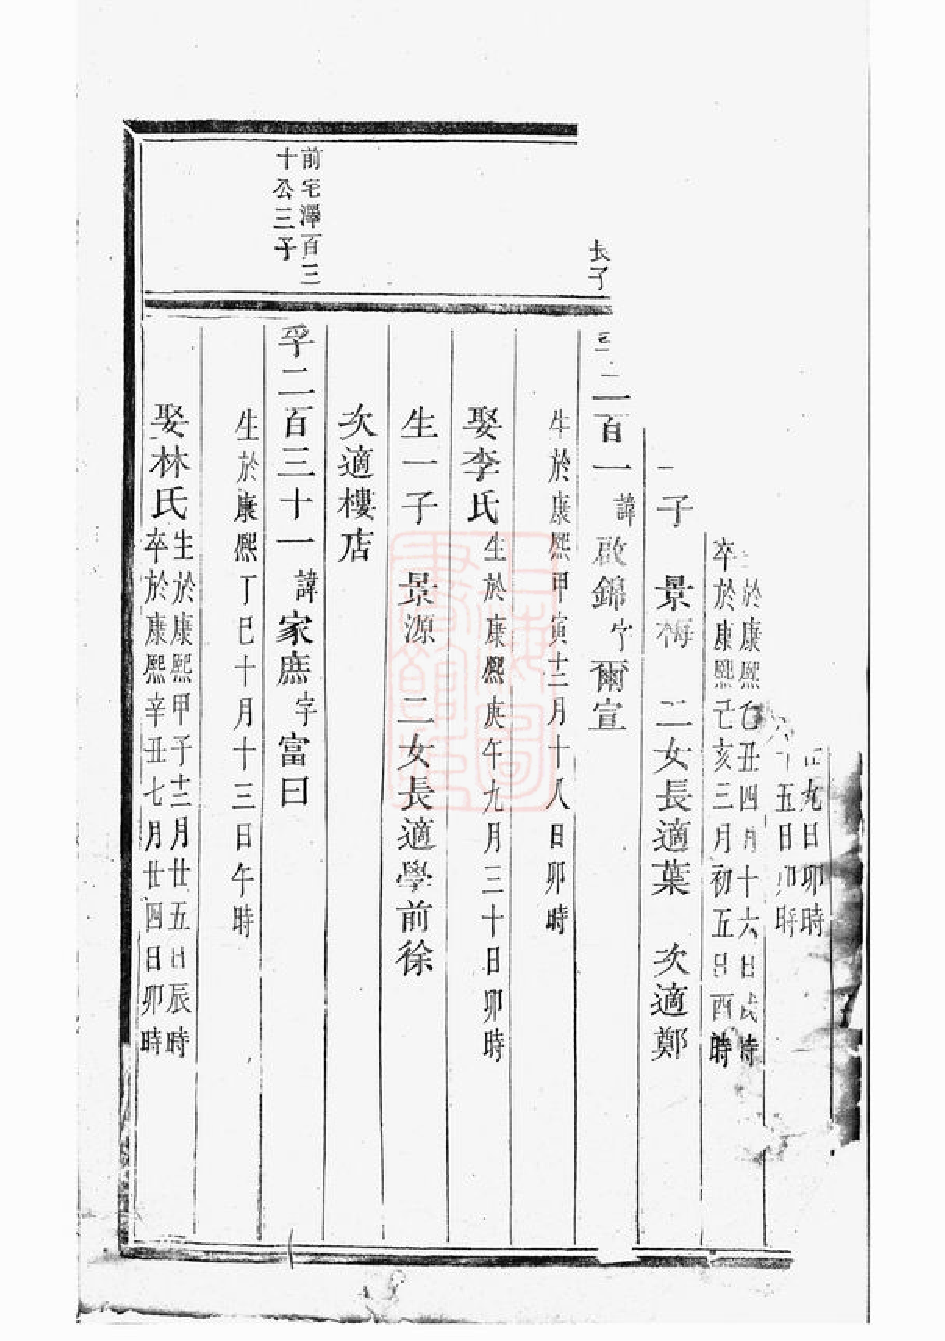 九日卯時
五日卯時
於康熙乙丑四月十六日戌時
卒於康熙己亥三月初五日酉時
一子 景梅 二女長適葉 次適鄭
長子
二百一諱啟錦字爾宣
生於康熙甲寅十二月十八日卯時
娶李氏生於康熙庚午九月三十日卯時
生一子 景源 二女長適學前徐
次適樓店
前宅澤百三
十公三子
孚二百三十一諱家廌字富曰
生於康熙丁巳十月十三日午時
娶林氏生於康熙甲子十二月廿五日辰時
卒於康熙辛丑七月廿四日卯時